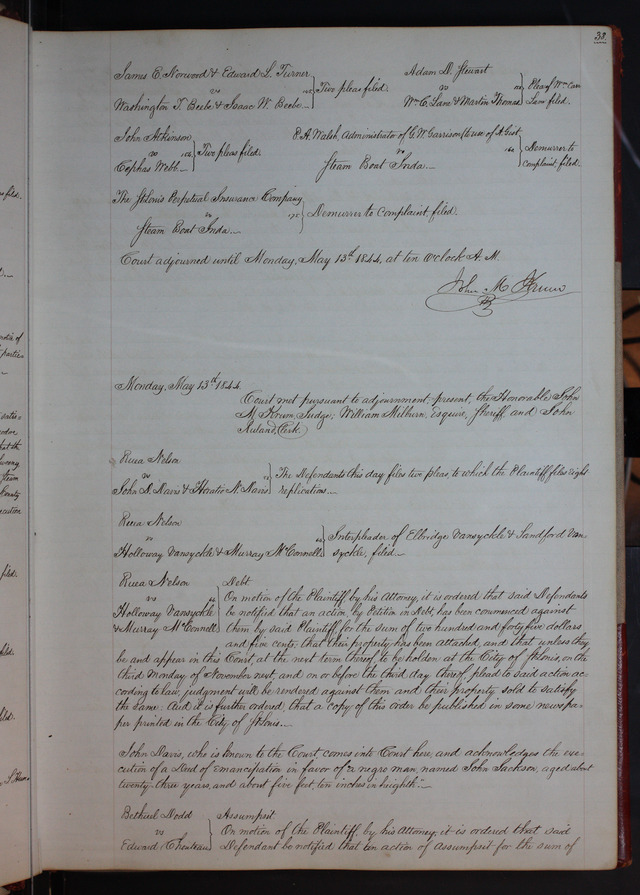 38.
James C. Norwood & Edward L. Turner
vs
Washington T. Beebe & Isaac W. Beebe
Two pleas filed.
Adam D. Stewart
vs
Wm. C. Lane & Martin Thomas
Plea of Wm Carr
Lane filed.
John Atkinson
vs
Cephas Webb
Two pleas filed.
R. A. Walsh, Administrator of G. W. Garrison to use of A Gist
vs
Steam Boat Inda
Demurrer to
complaint filed.
The St Louis Perpetual Insurance Company
vs
Steam Boat Inda
Demurrer to complaint filed.
Court adjourned until Monday, May 13th 1844, at ten O'clock A. M.
John M Krum
Monday, May 13th 1844.
Court met pursuant to adjournment present, the Honorable John
M. Krum, Judge; William Milburn, Esquire, Sheriff, and John
Ruland, Clerk.
Reuea Nelson
vs
John D. Davis & Horatio N. Davis
The Defendants this day files two pleas, to which the Plaintiff files eight
replications.
Reuea Nelson
vs
Holloway Vansyckle & Murray McConnell
Interpleader of Elbridge Vansyckle & Sandford Van-
syckle, filed.
Reuea Nelson
vs
Holloway Vansyckle
& Murray McConnell
Debt
On motion of the Plaintiff, by his Attorney, it is ordered that said Defendants
be notified that an action, by Petition in Debt, has been commenced against
them by said Plaintiff, for the sum of two hundred and forty five dollars
and five cents; that their property has been attached, and that unless they
be and appear in this Court, at the next term thereof, to be holden at the City of St Louis, on the
third Monday of November next, and on or before the third day thereof, plead to said action ac-
cording to law, judgment will be rendered against them and their property sold to satisfy
the same. And it is further ordered, that a copy of this order be published in some newspa-
per printed in the City of St Louis.
John Davis, who is known to the Court comes into Court here, and acknowledges the exe-
cution of a Deed of Emancipation in favor of a negro man, named John Jackson, aged about
twenty-three years, and about five feet, ten inches in heighth.
Bethuel Dodd
vs
Edward Chouteau
Assumpsit
On motion of the Plaintiff, by his Attorney, it is ordered that said
Defendant be notified that an action of assumpsit for the sum of